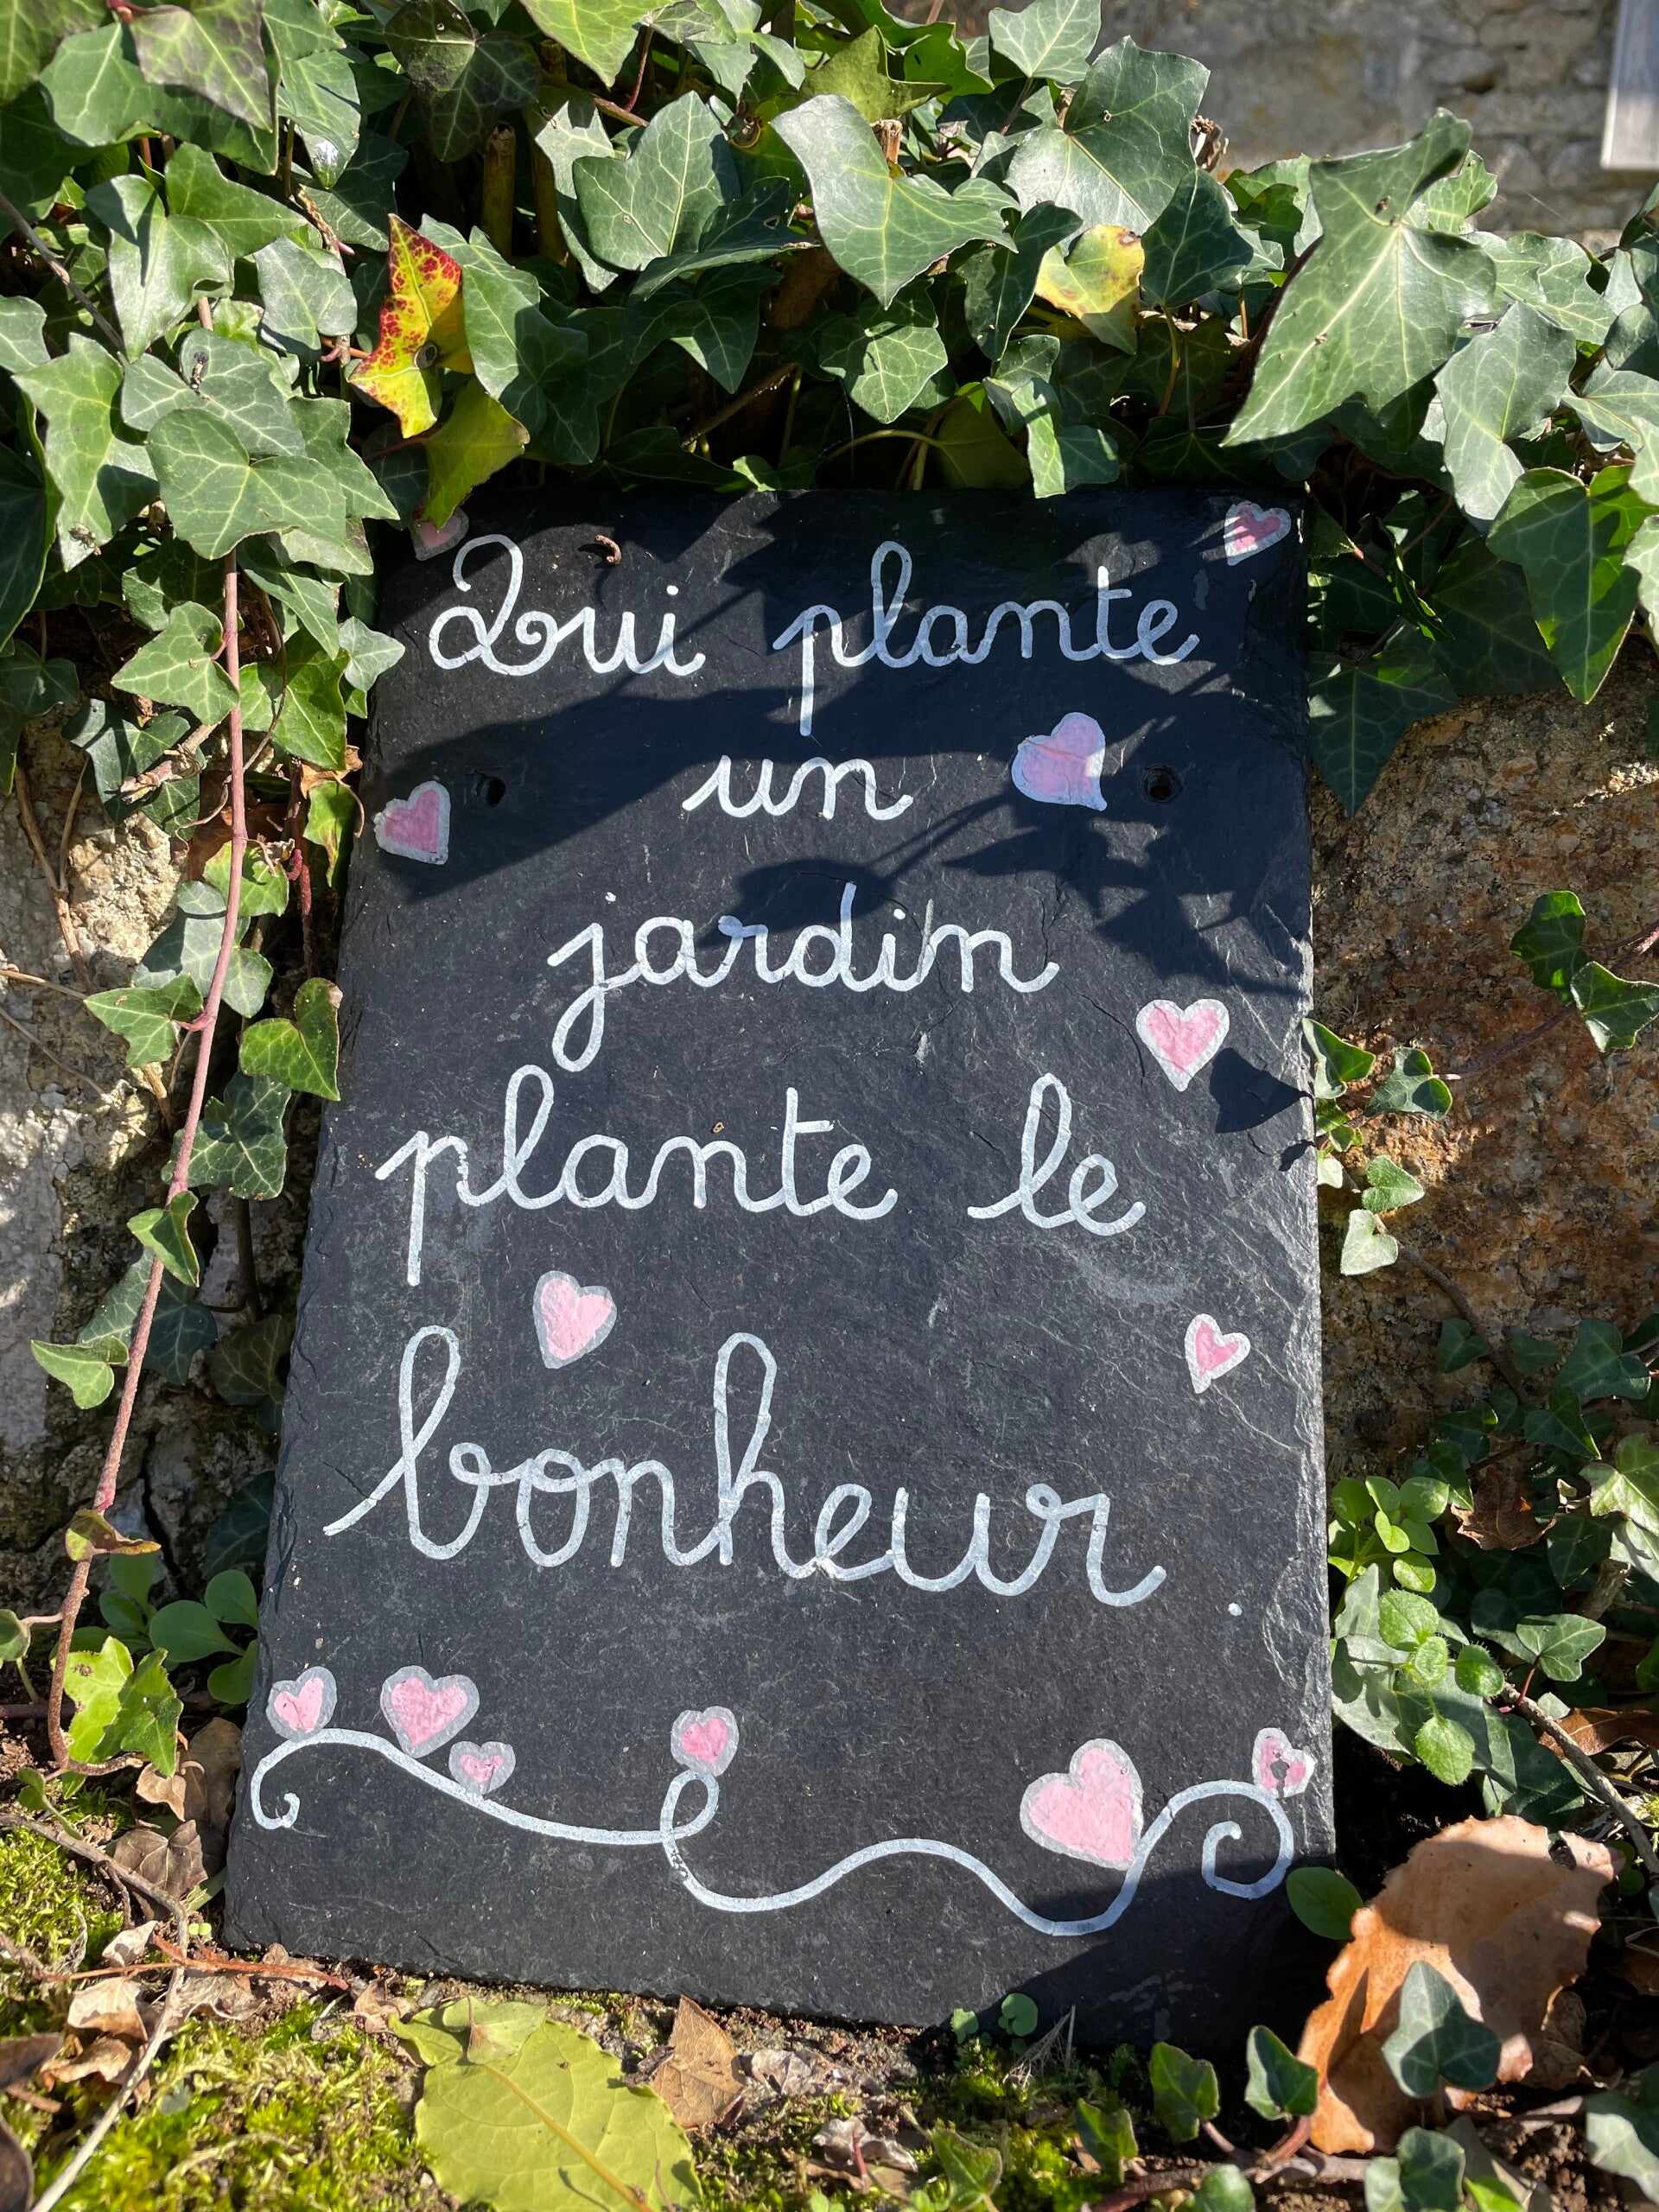 Qui plante
un
jardin
plante le
bonheur